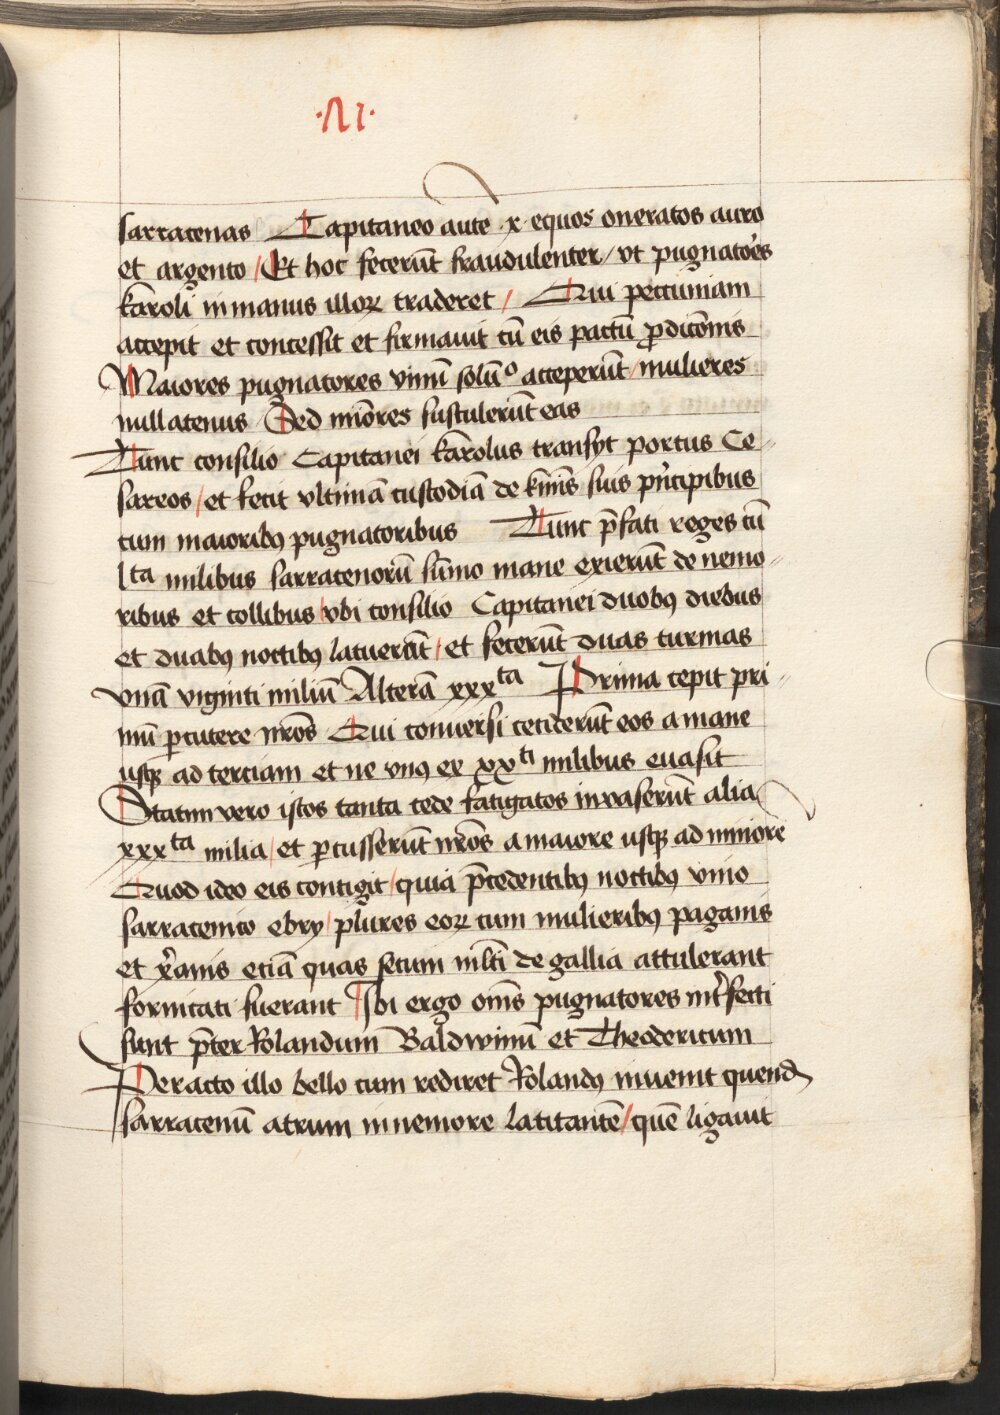 ·VI·
sarracenas Capitaneo aute x equos oneratos auro
et argento / Et hoc fecerūt fraudulenter / vt pugnatōēs
kāroli in manus illoꝝ traderet / Qui pecuniam
accepit et concessit et firmauit cū eis pactū ꝓdicōnis
Maiores pugnatores vinū solūo acceperūt / mulieres
nullatenus Sed mīores sustulerūt eas
Tunc consilio Capitanei kārolus transyt portus Ce-
sareos / et fecit vltimā custodiā de suis pͥncipibus
cum maioribꝰ pugnatoribus Tunc p̄fati reges cū
lta milibus sarracenorū sūmo mane exierūt de nemo-
ribus et collibus / vbi consilio Capitanei duobꝰ diebus
et duabꝰ noctibꝰ latuerūt / et fecerūt duas turmas
vnā viginti miliū Alterā xxxta Prima cepit pri-
mū ꝑcutere nr̄os Qui conuersi ceciderūt eos a mane
usqꝫ ad terciam et ne vnꝰ ex xxti milibus euasit
Statim vero istos tanta cede fatigatos inuaserūt alia
xxxta milia / et ꝑcusserūt nr̄os a maiore usqꝫ ad minorē
Quod ideo eis contigit / quia p̄cedentibꝰ noctibꝰ vino
sarracenico ebry / plures eoꝝ cum mulieribꝰ paganis
et xp̄anis eciā quas secum ml̄ti de gallia attulerant
fornicati fuerant Ibi ergo om̄s pugnatores int̄fecti
sunt p̄ter Rolandum Baldwinū et Theodericum
Peracto illo bello cum rediret Rolandꝰ inuenit quend
sarracenū atrum in nemore latitantē / quē ligauit